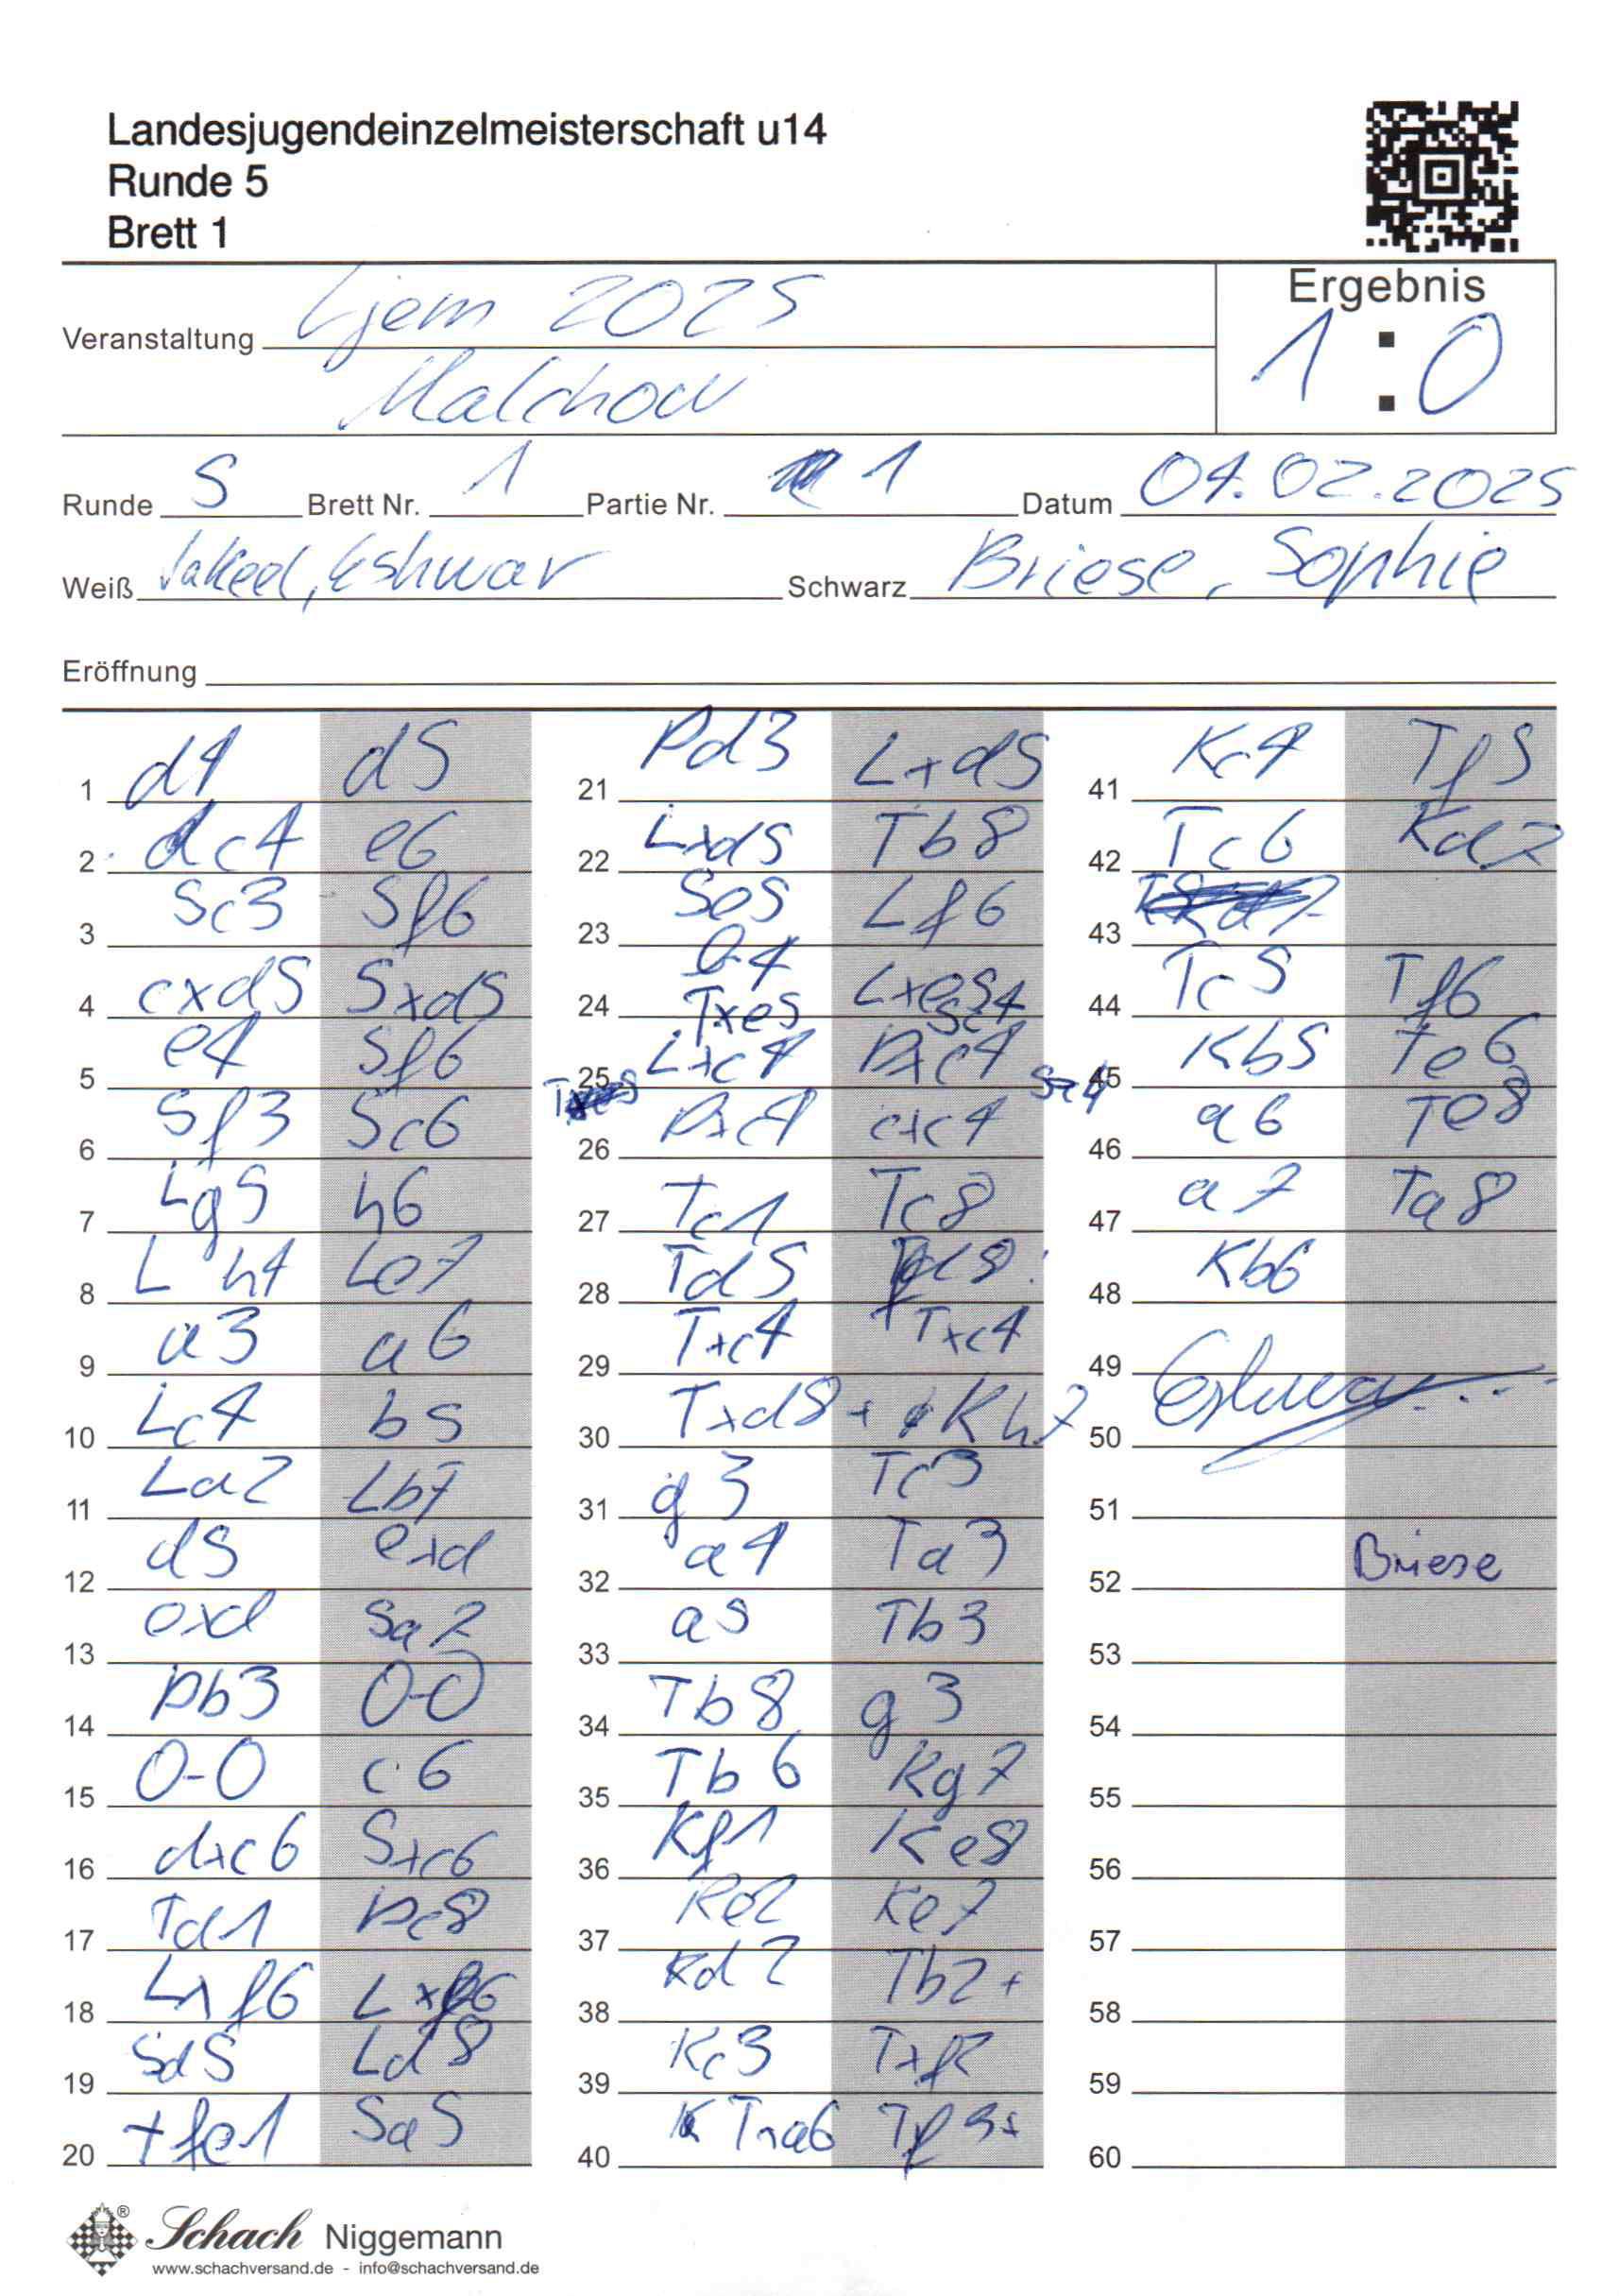 Landesjugendeinzelmeisterschaft u14
Runde 5
Brett 1
Veranstaltung Ljem 2025
Malchow
Ergebnis
1 : 0
Runde 5 Brett Nr. 1 Partie Nr. 1 Datum 04.02.2025
Weiß Eshwar Schwarz Briese, Sophie
Eröffnung
1 d4 d5
2 c4 e6
3 Sc3 Sf6
4 cxd5 Sxd5
5 e4 Sf6
6 Sf3 Sc6
7 Lg5 h6
8 Lh4 Le7
9 a3 a6
10 Lc4 b5
11 La2 Lb7
12 d5 exd
13 exd Sa7
14 Db3 0-0
15 0-0 c6
16 dxc6 Sxc6
17 Td1 Dc8
18 Lxf6 Lxf6
19 Sd5 Ld8
20 Tfe1 Sa5
21 Dd3 Lxd5
22 Lxd5 Tb8
23 Se5 Lf6
24 Txe5 Lxe5 Sc4
25 Lxc4 Dxc4
26 Dxc4 cxc4
27 Tc1 Tc8
28 Td5
29 Txc4 Txc4
30 Txd8+ Kh7
31 g3 Tc3
32 a4 Ta3
33 a5 Tb3
34 Tb8 g3
35 Tb6 Kg7
36 Kf1 Ke8
37 Ke2 Ke7
38 Kd2 Tb2+
39 Kc3 Txf2
40 Txa6 Tf3+
41 Kc4 Tf5
42 Tc6 Kd7
43
44 Tc5 Tf6
45 Kb5 Te6
46 a6 Te8
47 a7 Ta8
48 Kb6
49 Eshwar
50
51
52 Briese
53
54
55
56
57
58
59
60
Schach Niggemann
www.schachversand.de - info@schachversand.de